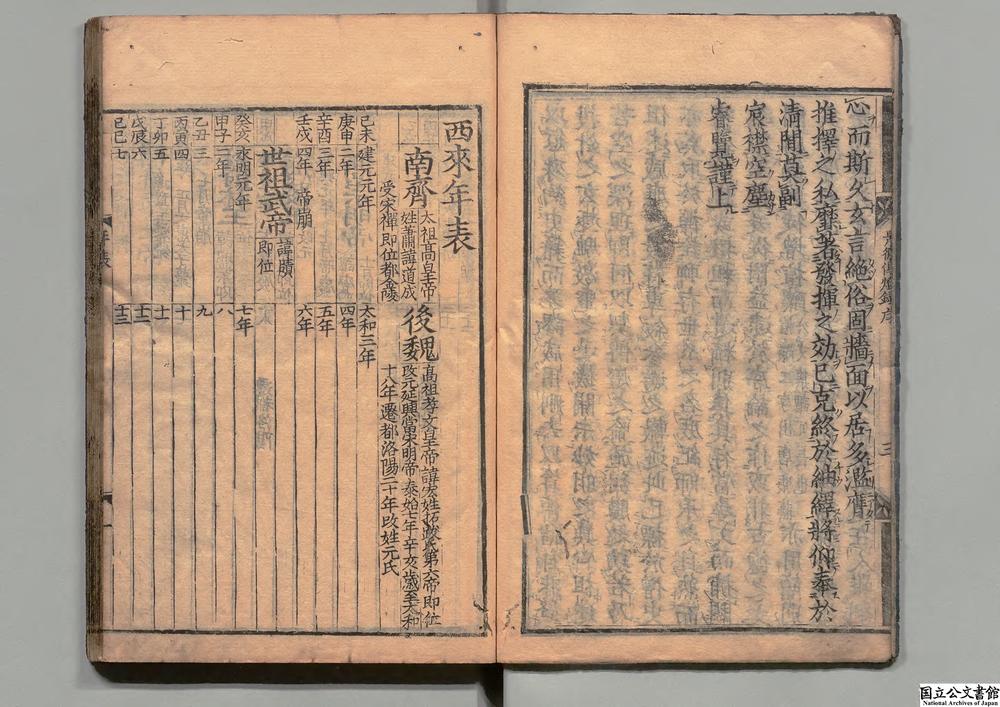 心而斯久玄言絶俗固牆面以居多濫膺
推擇之私靡著發揮之効已克終於紬繹將仰奉於
清閒莫副
宸襟空塵
睿覽謹上
三
西來年表
南齊
太祖高皇帝
姓蕭諱道成
受宋禪即位都金陵
後魏
高祖孝文皇帝諱宏姓拓跋氏第六帝即位
改元延興當宋明帝泰始七年辛亥歳至太和
十八年遷都洛陽二十年改姓元氏
己未建元元年
太和三年
庚申二年
四年
辛酉三年
五年
壬戌四年 帝崩
六年
世祖武帝
諱賾
即位
癸亥永明元年
七年
甲子二年
八
乙丑三
九
丙寅四
十
丁卯五
十一
戊辰六
十二
己巳七
十三
年表
一
国立公文書館
National Archives of Japan